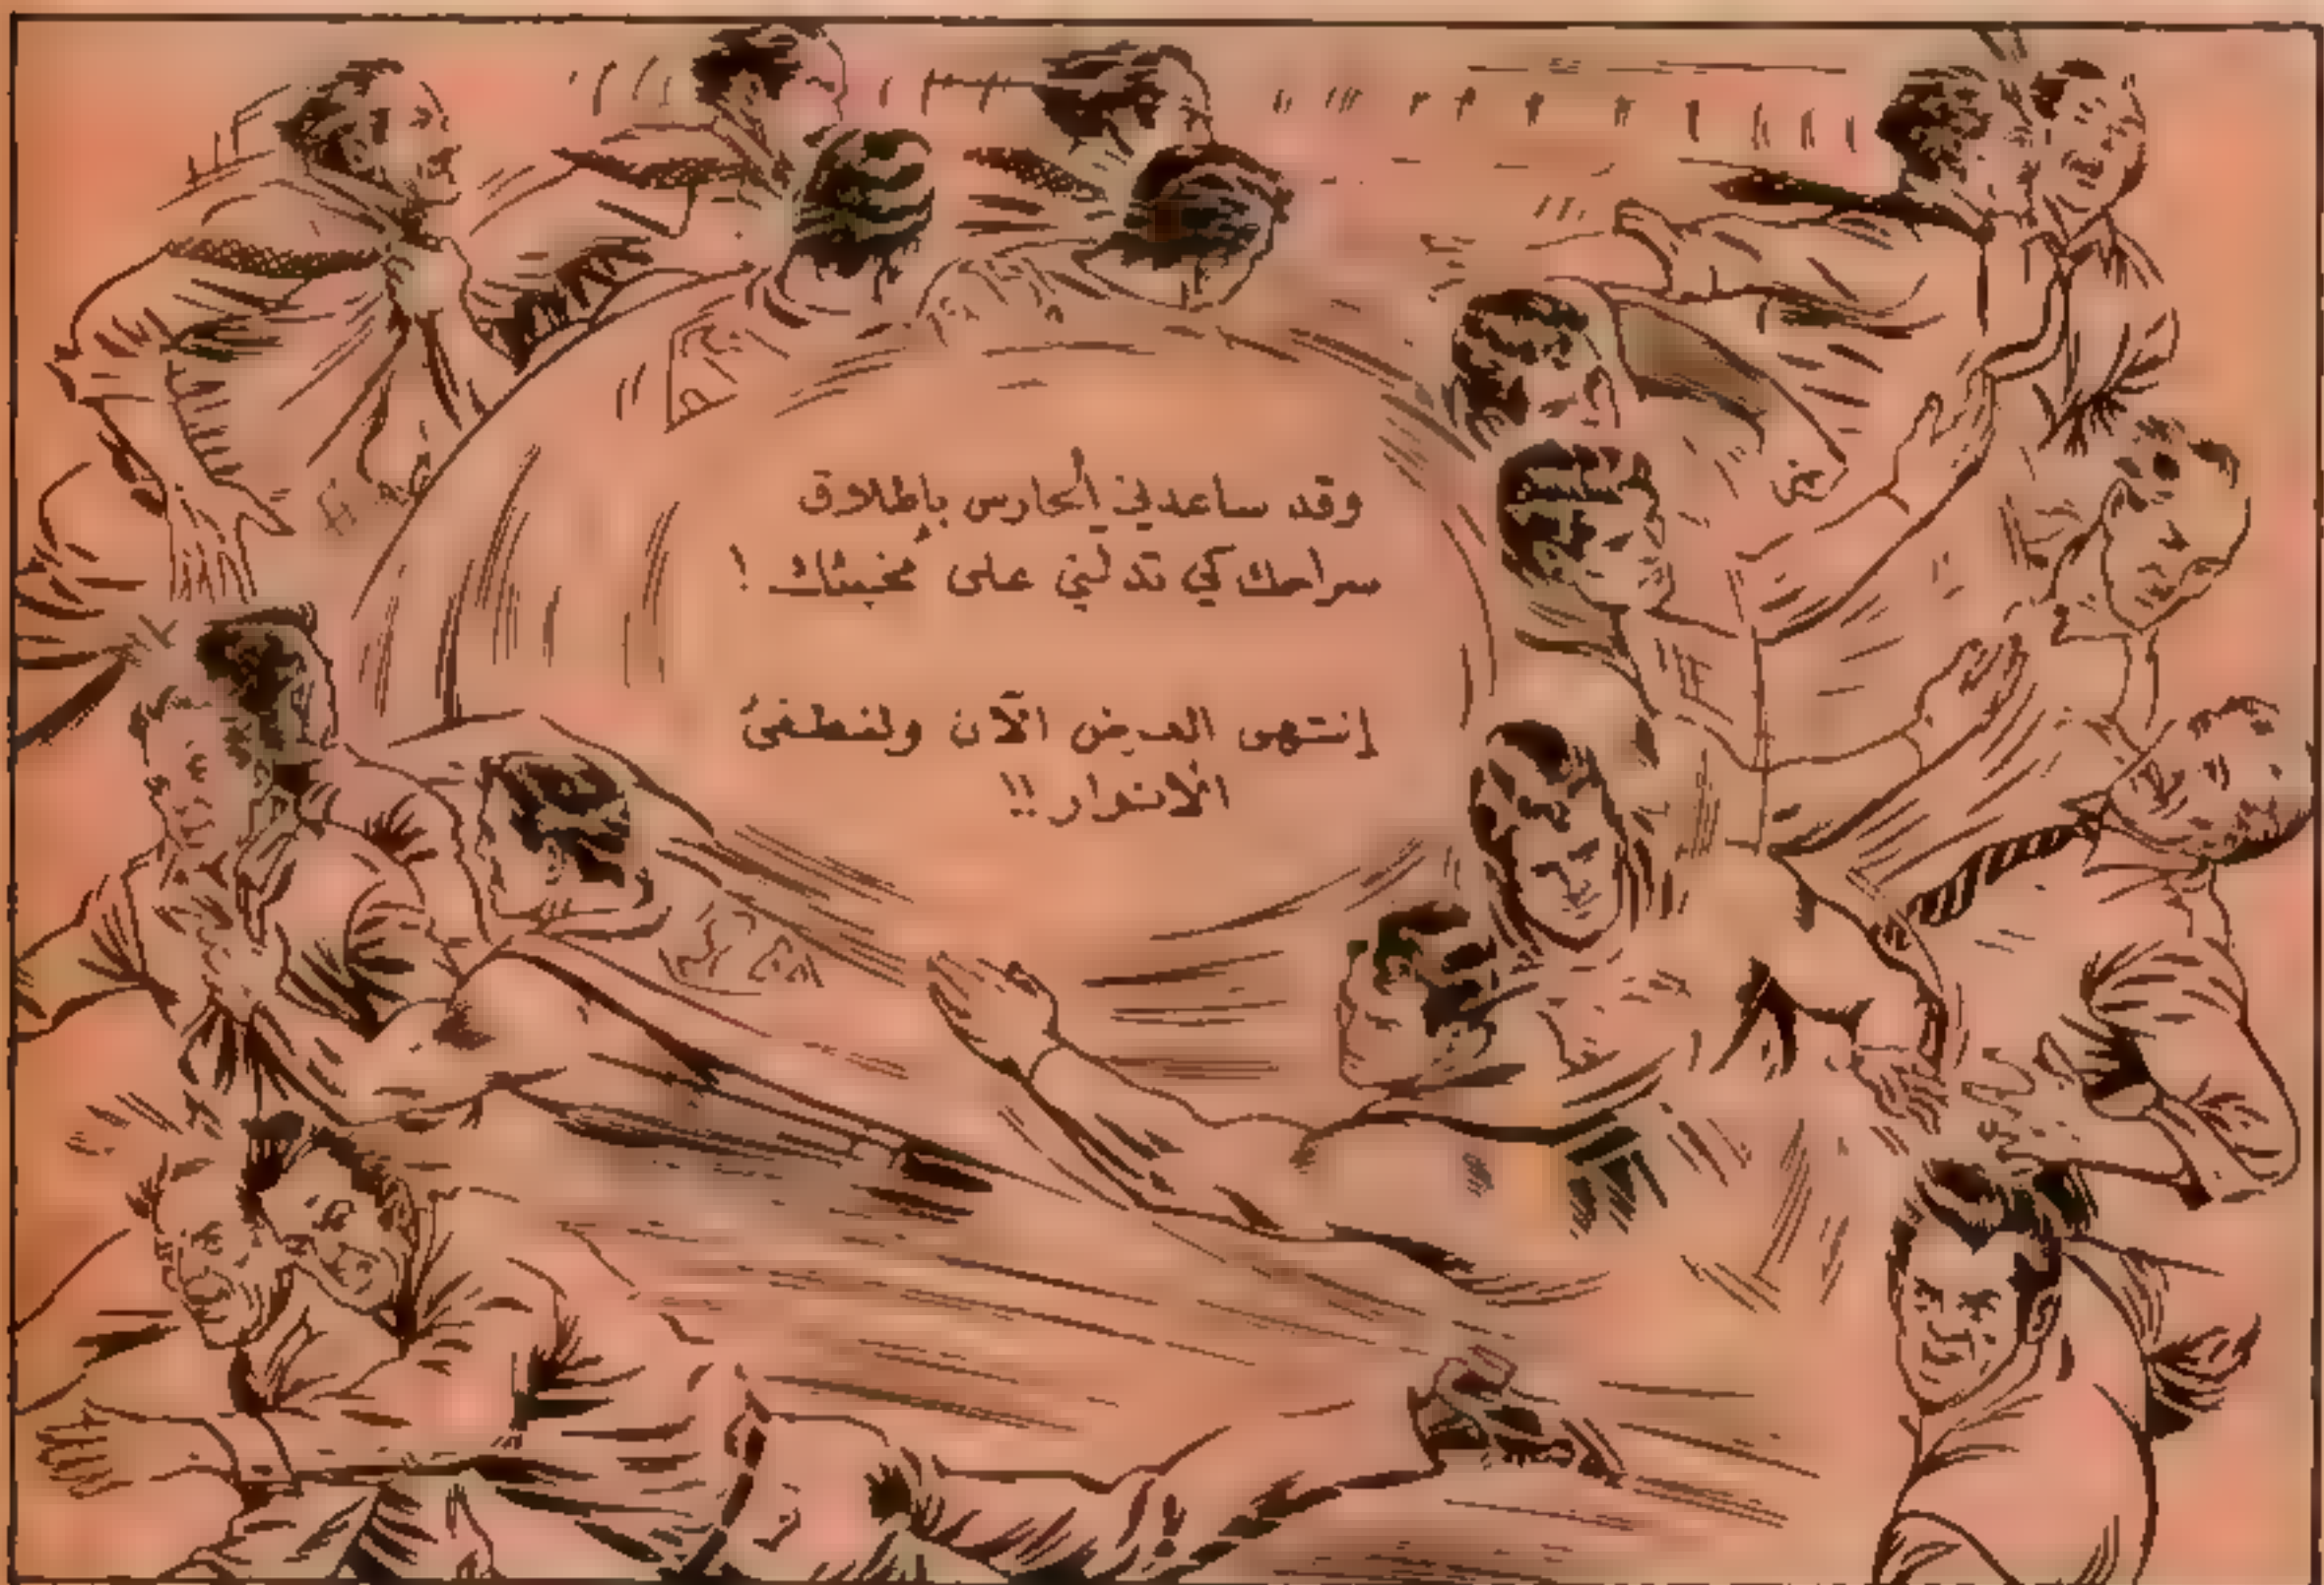 وقد ساعدني الحارس بإطلاق
سراحك كي تدلني على مخبئك !
إنتهى العرض الآن ولنطفئ
الأنوار !!